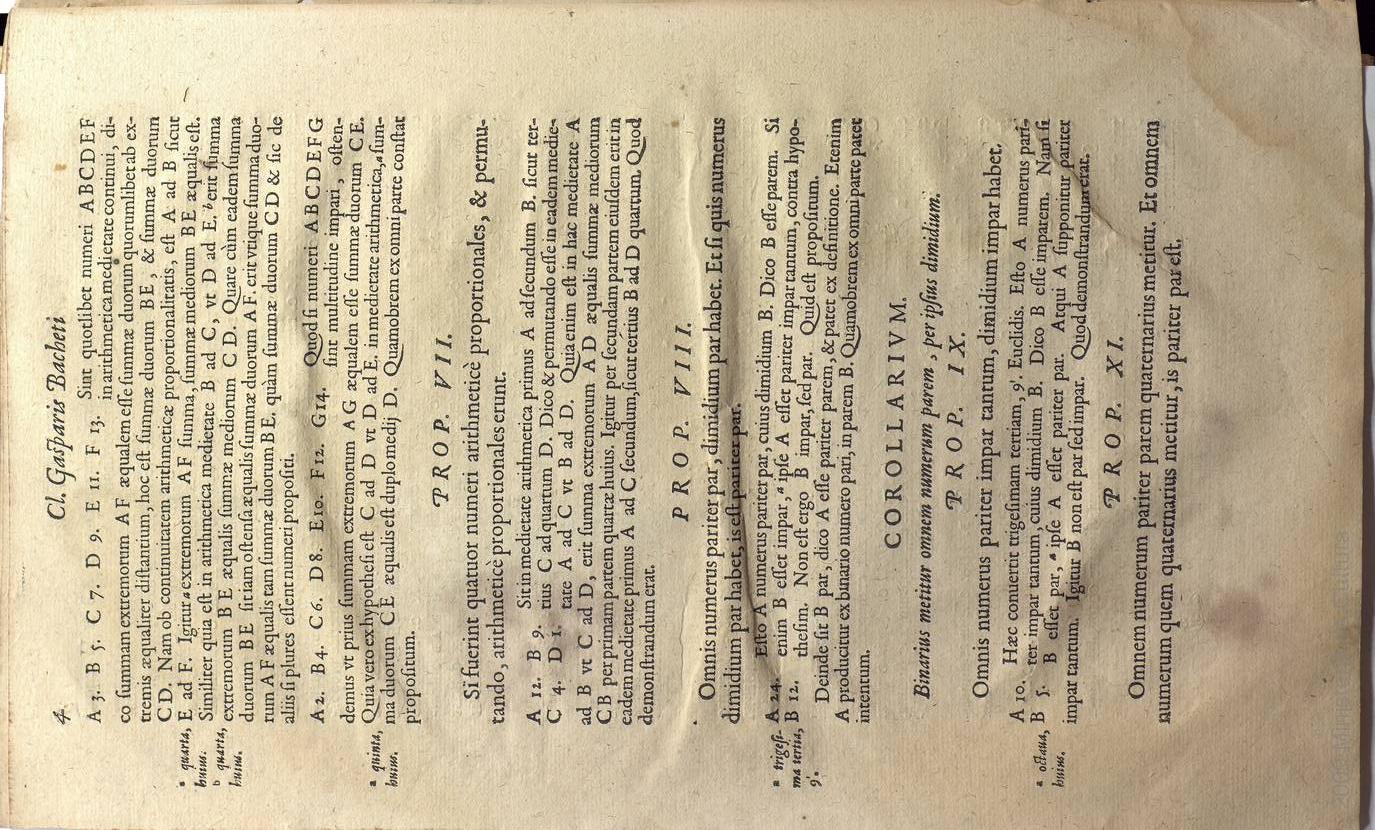 4 Cl. Gaſparis Bacheti
A 3. B 5. C 7. D 9. E 11. F 13. Sint quotlibet numeri A B C D E F
in arithmetica medietate continui, di-
co ſummam extremorum A F æqualem eſſe ſummæ duorum quorumlibet ab ex-
tremis æqualiter diſtantium, hoc eſt ſummæ duorum B E, & ſummæ duorum
C D. Nam ob continuitatem arithmeticæ proportionalitatis, eſt A ad B ſicut
a quarta, E ad F. Igitur a extremorum A F ſumma, ſummæ mediorum B E æqualis eſt.
huius. Similiter quia eſt in arithmetica medietate B ad C, vt D ad E. b erit ſumma
b quarta, extremorum B E æqualis ſummæ mediorum C D. Quare cùm eadem ſumma
huius. duorum B E ſit iam oſtenſa æqualis ſummæ duorum A F. erit vtique ſumma duo-
rum A F æqualis tam ſummæ duorum B E. quàm ſummæ duorum C D & ſic de
aliis ſi plures eſſent numeri propoſiti.
A 2. B 4. C 6. D 8. E 10. F 12. G 14. Quod ſi numeri A B C D E F G
ſint multitudine impari, oſten-
demus vt prius ſummam extremorum A G æqualem eſſe ſummæ duorum C E.
Quia vero ex hypotheſi eſt C ad D vt D ad E. in medietate arithmetica, a ſum-
a quinta, ma duorum C E æqualis eſt duplo medij D. Quamobrem ex omni parte conſtat
huius. propoſitum.
PROP. VII.
Si fuerint quatuor numeri arithmeticè proportionales, & permu-
tando, arithmeticè proportionales erunt.
A 12. B 9. Sit in medietate arithmetica primus A ad ſecundum B. ſicut ter-
C 4. D 1. tius C ad quartum D. Dico & permutando eſſe in eadem medie-
tate A ad C vt B ad D. Quia enim eſt in hac medietate A
ad B vt C ad D, erit ſumma extremorum A D æqualis ſummæ mediorum
C B per primam partem quartæ huius. Igitur per ſecundam partem eiuſdem erit in
eadem medietate primus A ad C ſecundum, ſicut tertius B ad D quartum. Quod
demonſtrandum erat.
PROP. VIII.
Omnis numerus pariter par, dimidium par habet. Et ſi quis numerus
dimidium par habet, is eſt pariter par.
a trigeſi- A 24. Eſto A numerus pariter par, cuius dimidium B. Dico B eſſe parem. Si
ma tertia, B 12. enim B eſſet impar, a ipſe A eſſet pariter impar tantum, contra hypo-
9i. theſim. Non eſt ergo B impar, ſed par. Quid eſt propoſitum.
Deinde ſit B par, dico A eſſe pariter parem, & patet ex definitione. Etenim
A producitur ex binario numero pari, in parem B. Quamobrem ex omni parte patet
intentum.
COROLLARIVM.
Binarius metitur omnem numerum parem, per ipſius dimidium.
PROP. IX.
Omnis numerus pariter impar tantum, dimidium impar habet.
A 10. Hæc conuertit trigeſimam tertiam, 9i. Euclidis. Eſto A numerus pari-
B 5. ter impar tantum, cuius dimidium B. Dico B eſſe imparem. Nam ſi
a octaua, B eſſet par, a ipſe A eſſet pariter par. Atqui A ſupponitur pariter
huius. impar tantum. Igitur B non eſt par ſed impar. Quod demonſtrandum erat.
PROP. XI.
Omnem numerum pariter parem quaternarius metitur. Et omnem
numerum quem quaternarius metitur, is pariter par eſt.